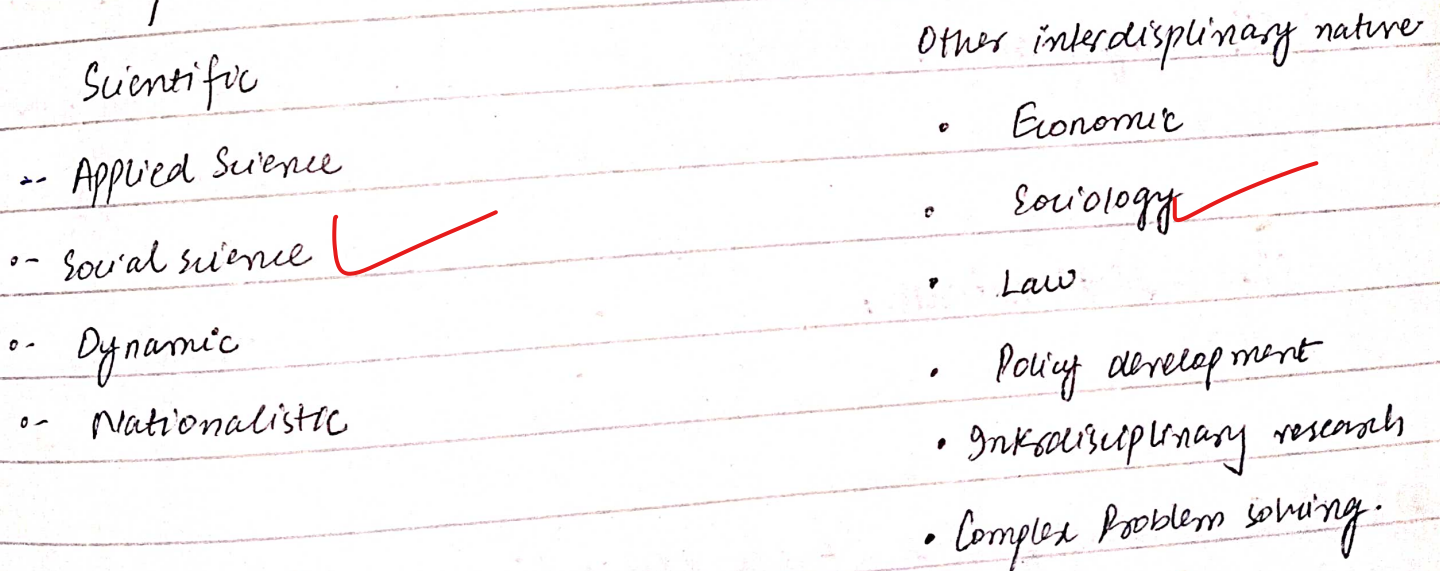 Scientific
Applied Science
Social science
Dynamic
Nationalistic
Other interdisplinary nature
• Economic
• Sociology
• Law
• Policy development
• Interdisciplinary research
• Complex Problem solving.